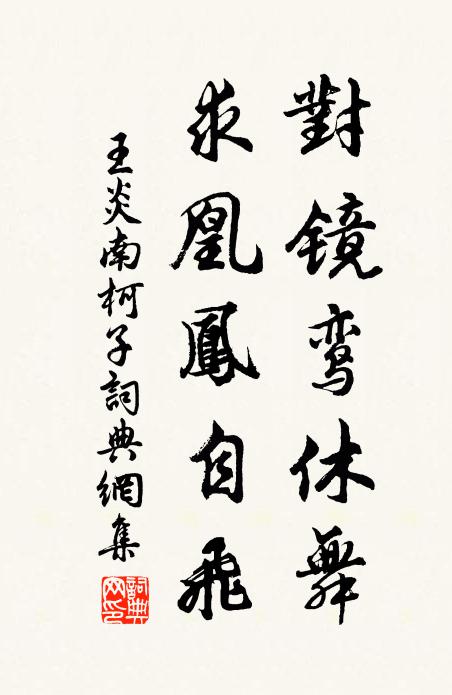 對镜鸾休舞
求凰鳳自飛
王炎南柯子詞典網集
詞典
网印